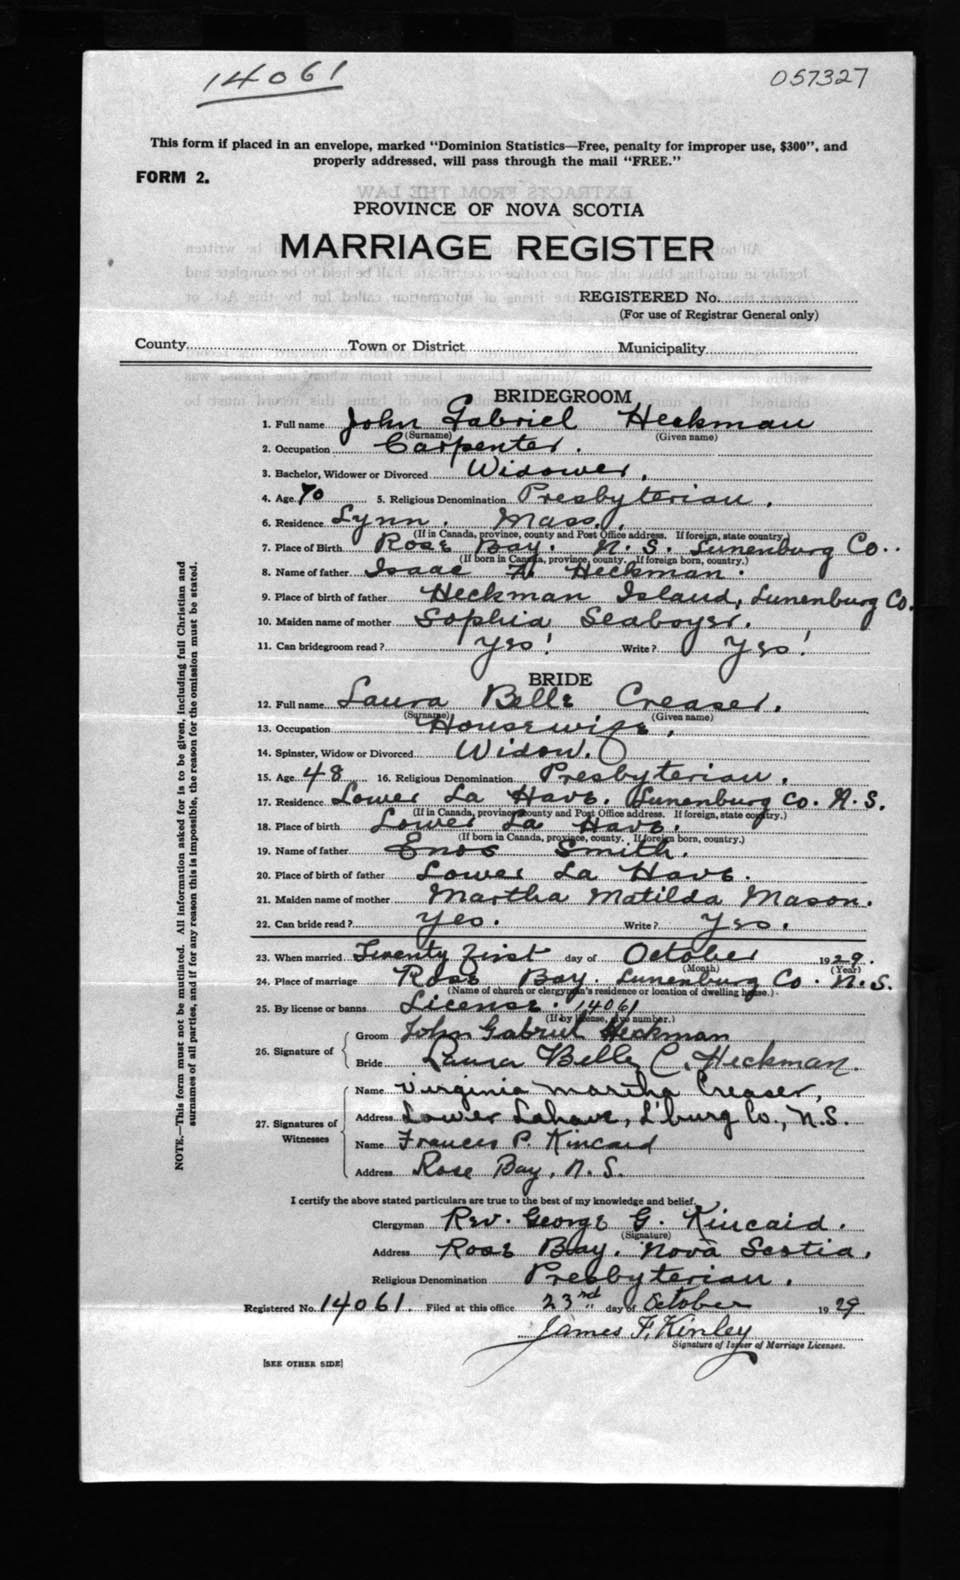 14061
057327
This form if placed in an envelope, marked "Dominion Statistics—Free, penalty for improper use, $300", and
properly addressed, will pass through the mail "FREE."
FORM 2.
PROVINCE OF NOVA SCOTIA
MARRIAGE REGISTER
REGISTERED No.
(For use of Registrar General only)
County Town or District Municipality
BRIDEGROOM
1. Full name John Gabriel Heckman
(Surname) (Given name)
2. Occupation Carpenter.
3. Bachelor, Widower or Divorced Widower.
4. Age 70 5. Religious Denomination Presbyterian.
6. Residence Lynn. Mass.
(If in Canada, province, county and Post Office address. If foreign, state country.)
7. Place of Birth Rose Bay. N. S. Lunenburg Co.
(If born in Canada, province, county. If foreign born, country.)
8. Name of father Isaac A. Heckman.
9. Place of birth of father Heckman Island, Lunenburg Co.
10. Maiden name of mother Sophia Seaboyer.
11. Can bridegroom read? Yes! Write? Yes!
BRIDE
12. Full name Laura Belle Creaser.
(Surname) (Given name)
13. Occupation Housewife.
14. Spinster, Widow or Divorced Widow.
15. Age 48 16. Religious Denomination Presbyterian.
17. Residence Lower La Have. Lunenburg Co. N. S.
(If in Canada, province, county and Post Office address. If foreign, state country.)
18. Place of birth Lower La Have.
(If born in Canada, province, county. If foreign born, country.)
19. Name of father Enos Smith.
20. Place of birth of father Lower La Have.
21. Maiden name of mother Martha Matilda Mason.
22. Can bride read? Yes. Write? Yes.
23. When married Twenty First day of October 1929.
(Month) (Year)
24. Place of marriage Rose Bay. Lunenburg Co. N.S.
(Name of church or clergyman's residence or location of dwelling house.)
25. By license or banns License. 14061
(If by license, give number.)
26. Signature of Groom John Gabriel Heckman
Bride Laura Belle C. Heckman.
27. Signatures of Witnesses Name Virginia Martha Creaser,
Address Lower Lahave, L'burg Co., N.S.
Name Frances P. Kincaid
Address Rose Bay, N. S.
I certify the above stated particulars are true to the best of my knowledge and belief.
Clergyman Rev. George G. Kincaid.
(Signature)
Address Rose Bay. Nova Scotia.
Religious Denomination Presbyterian.
Registered No. 14061. Filed at this office 23rd day of October 1929
James F. Kinley
Signature of Issuer of Marriage Licenses.
[SEE OTHER SIDE]
NOTE.—This form must not be mutilated. All information asked for is to be given, including full Christian and
surnames of all parties, and if for any reason this is impossible, the reason for the omission must be stated.